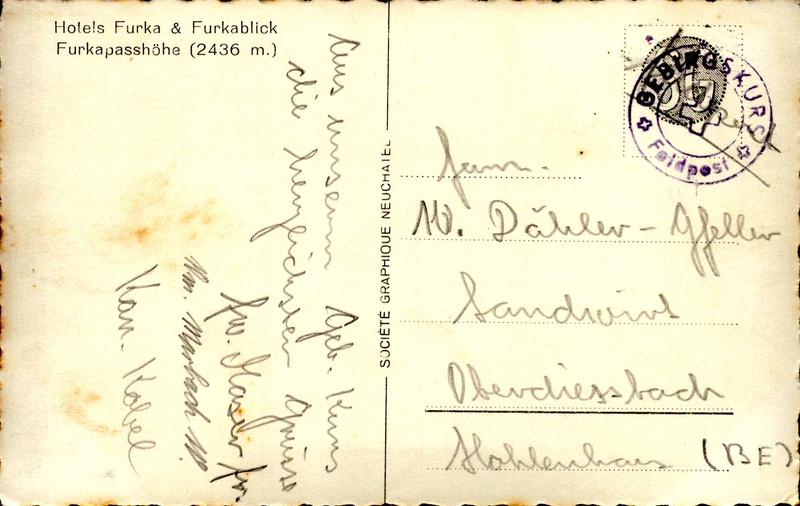 Hotels Furka & Furkablick
Furkapasshöhe (2436 m.)
Aus unserm Geb. Kurs
die herzlichsten Grüsse
Kan. Kobel
SOCIÉTÉ GRAPHIQUE NEUCHATEL
GEBIRGSKURS
Feldpost
Fam.
W. Dähler - Gfeller
Landwirt
Oberdiessbach
(BE)